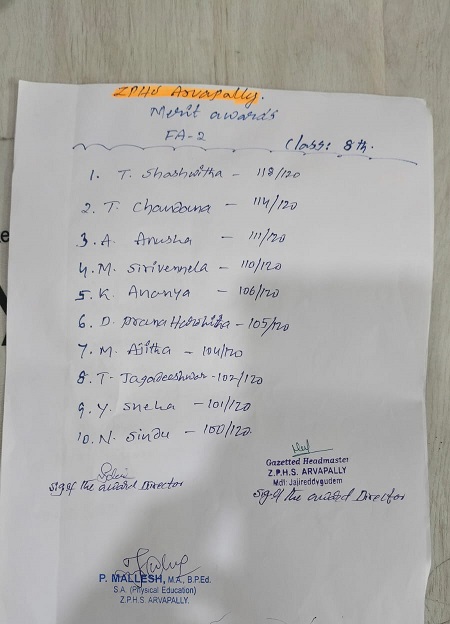 ZPHS Arvapally.
Merit awards
FA-2
Class: 8th.
1. T. Shashwitha - 118/120
2. T. Chandana - 114/120
3. A. Anusha - 111/120
4. M. Sirivennela - 110/120
5. K. Ananya - 106/120
6. D. Harshitha - 105/120
7. M. Ajitha - 104/120
8. T. Jagadeeshwar - 102/120
9. Y. Sneha - 101/120
10. N. Sindu - 100/120.
Sig of the award Director
Gazetted Headmaster
Z.P.H.S. ARVAPALLY
Mdl: Jajireddygudem
Sig. of the award Director
P. MALLESH, M.A., B.P.Ed.
S.A. (Physical Education)
Z.P.H.S. ARVAPALLY.